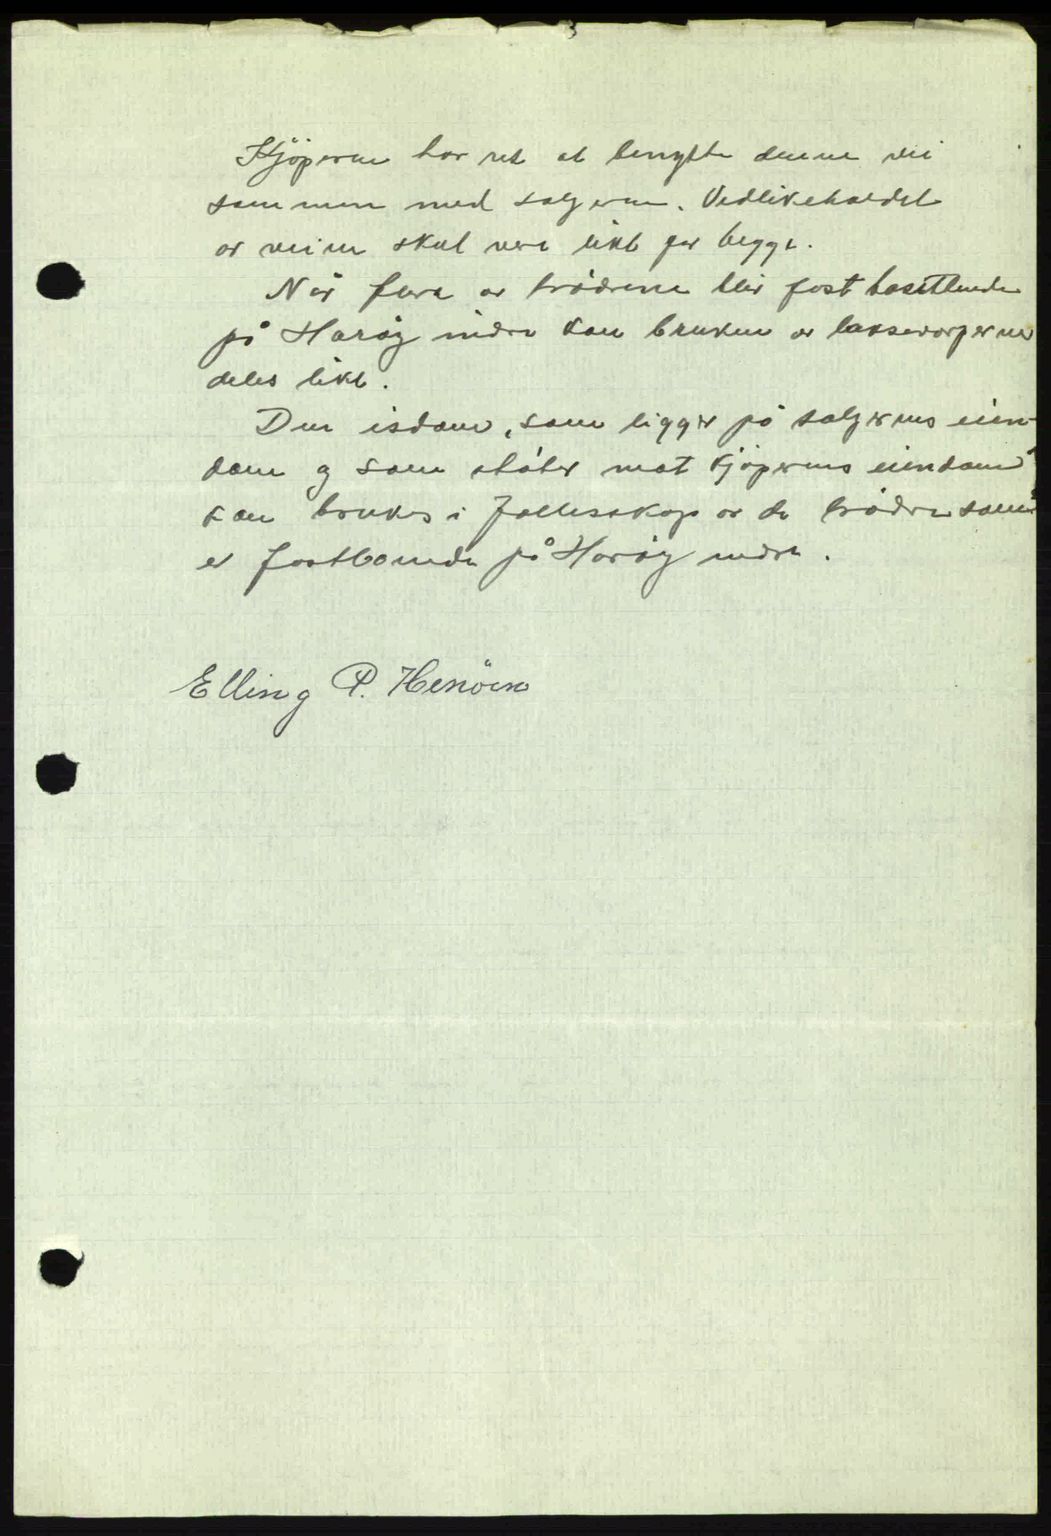 Kjøperen har ret at benytte denne vei
sammen med selgeren. Vedlikeholdet
av veien skal vere likt for begge.
Når flere av brødrene blir fast bosittende
på Harøy indre kan bruken av laksevorperne
deles likt.
Den isdam, som ligger på selgerens eien-
dom og som støter mot kjøperens eiendom
kan brukes i fellesskap av de brødre som
er fastboende på Harøy indre.
Elling P.